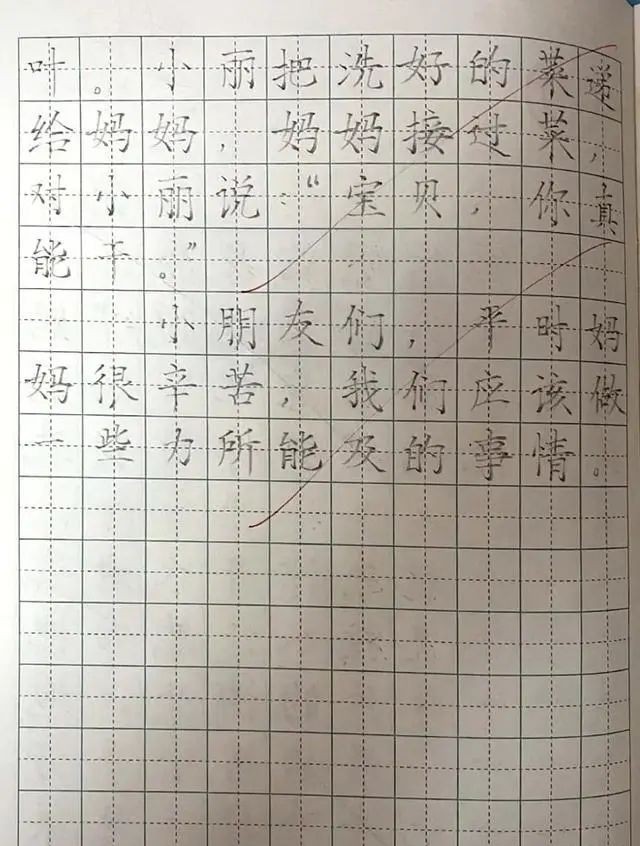 叶。小丽把洗好的菜递
给妈妈，妈妈接过菜，
对小丽说：“宝贝，你真
能干。”
小朋友们，平时妈
妈很辛苦，我们应该做
一些力所能及的事情。